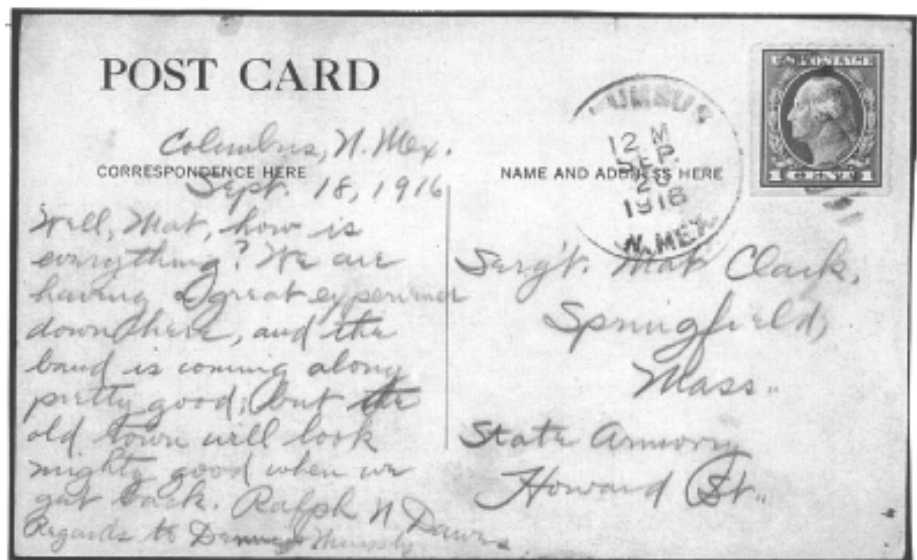 POST CARD
Columbus, N. Mex.
CORRESPONDENCE HERE
Sept. 18, 1916
Well, Mat, how is
everything? We are
having a great experience
down here, and the
band is coming along
pretty good; but the
old town will look
mighty good when we
get back. Ralph N
Regards to
U.S. POSTAGE
1 CENT 1
12 M
SEP
20
1916
N. MEX.
NAME AND ADDRESS HERE
Serg't. Mat Clark,
Springfield,
Mass.
State Armory
Howard St.